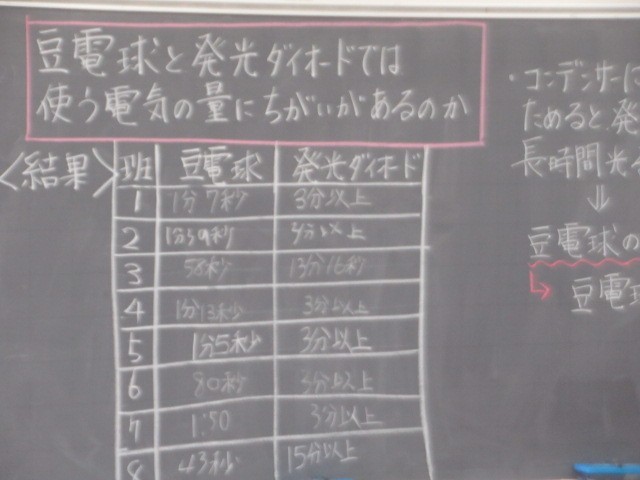 豆電球と発光ダイオードでは
使う電気の量にちがいがあるのか
<結果>
班 豆電球 発光ダイオード
1 1分7秒 3分以上
2 1分59秒 4分以上
3 58秒 13分16秒
4 1分13秒 3分以上
5 1分5秒 3分以上
6 80秒 3分以上
7 1:50 3分以上
8 43秒 15分以上
・コンデンサーに
ためると、発
長時間光
⇓
豆電球の
豆電